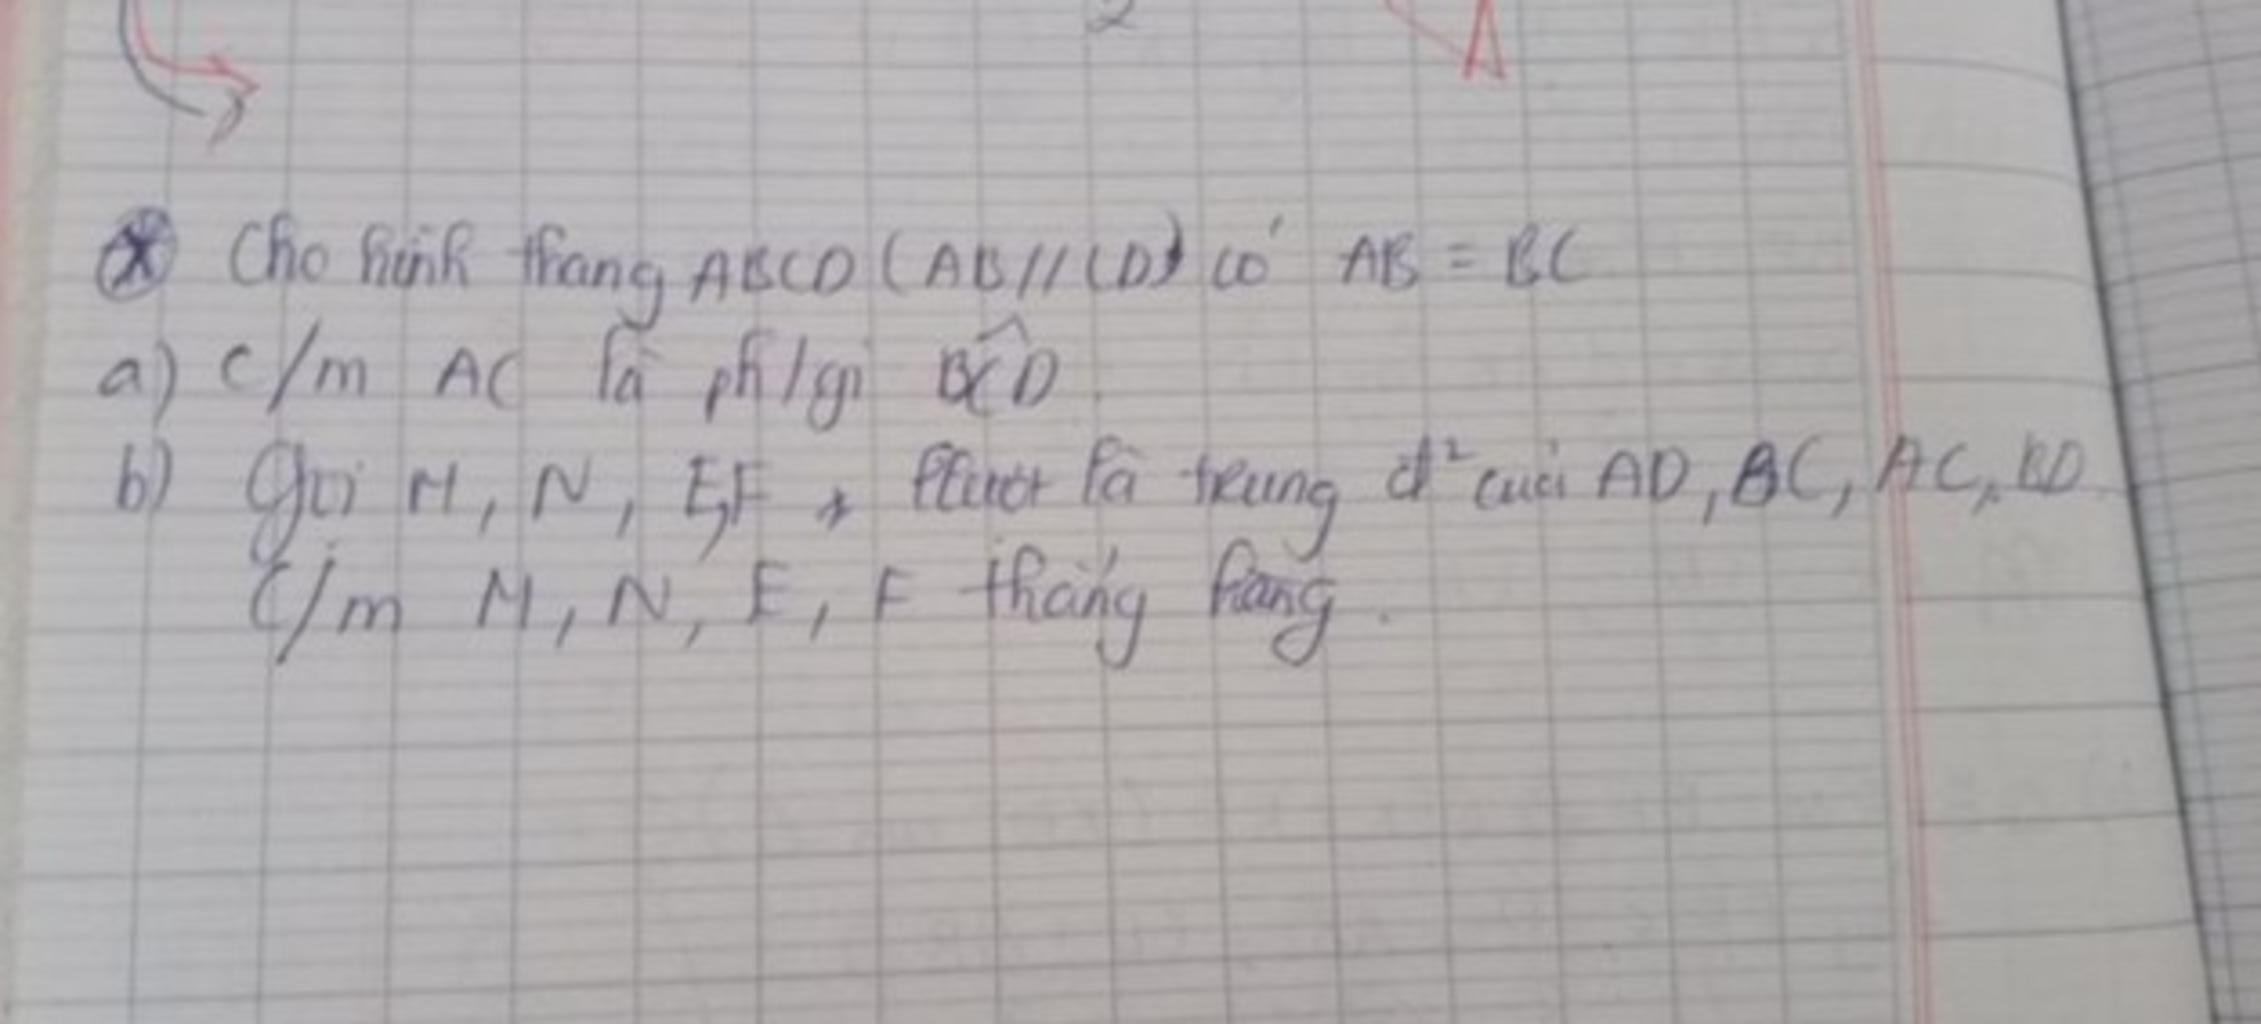 2
A
* Cho hình thang ABCD (AB // CD) có AB = BC
a) c/m AC là ph/gi BCD.
b) Gọi M, N, E, F lần lượt là trung đ² của AD, BC, AC, BD
C/m M, N, E, F thẳng hàng.